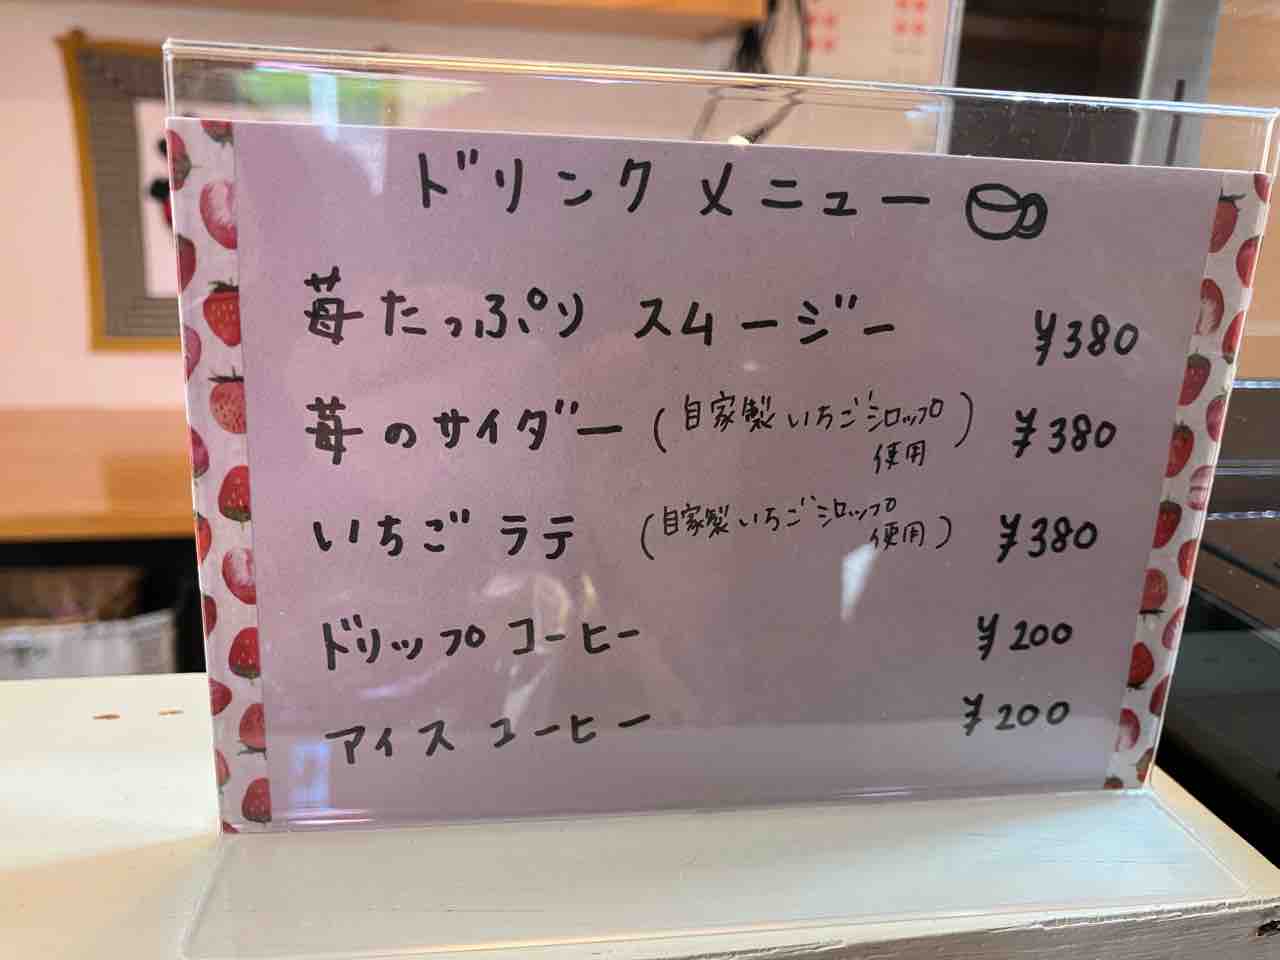 ドリンク メニュー
苺たっぷり スムージー ¥380
苺のサイダー (自家製いちごシロップ使用) ¥380
いちご ラテ (自家製いちごシロップ使用) ¥380
ドリップ コーヒー ¥200
アイス コーヒー ¥200